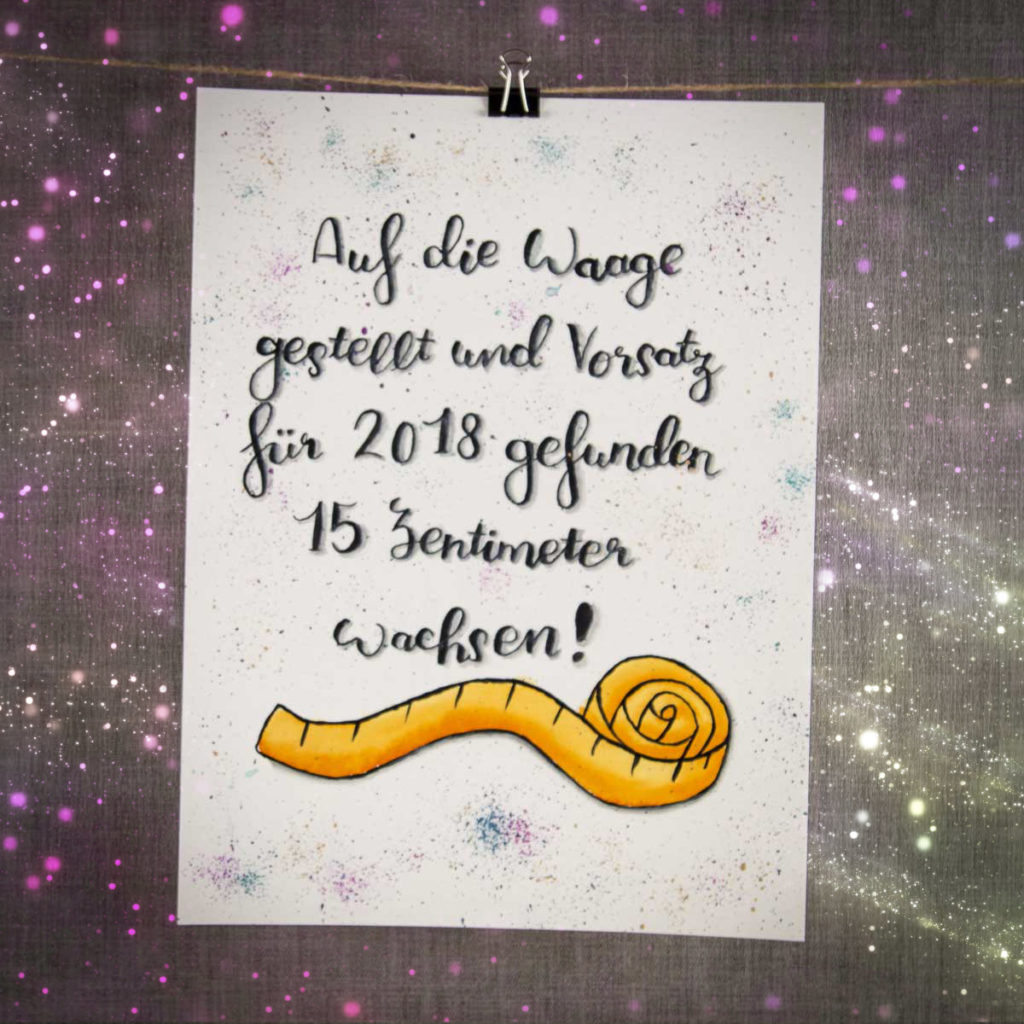 Auf die Waage
gestellt und Vorsatz
für 2018 gefunden
15 Zentimeter
wachsen!